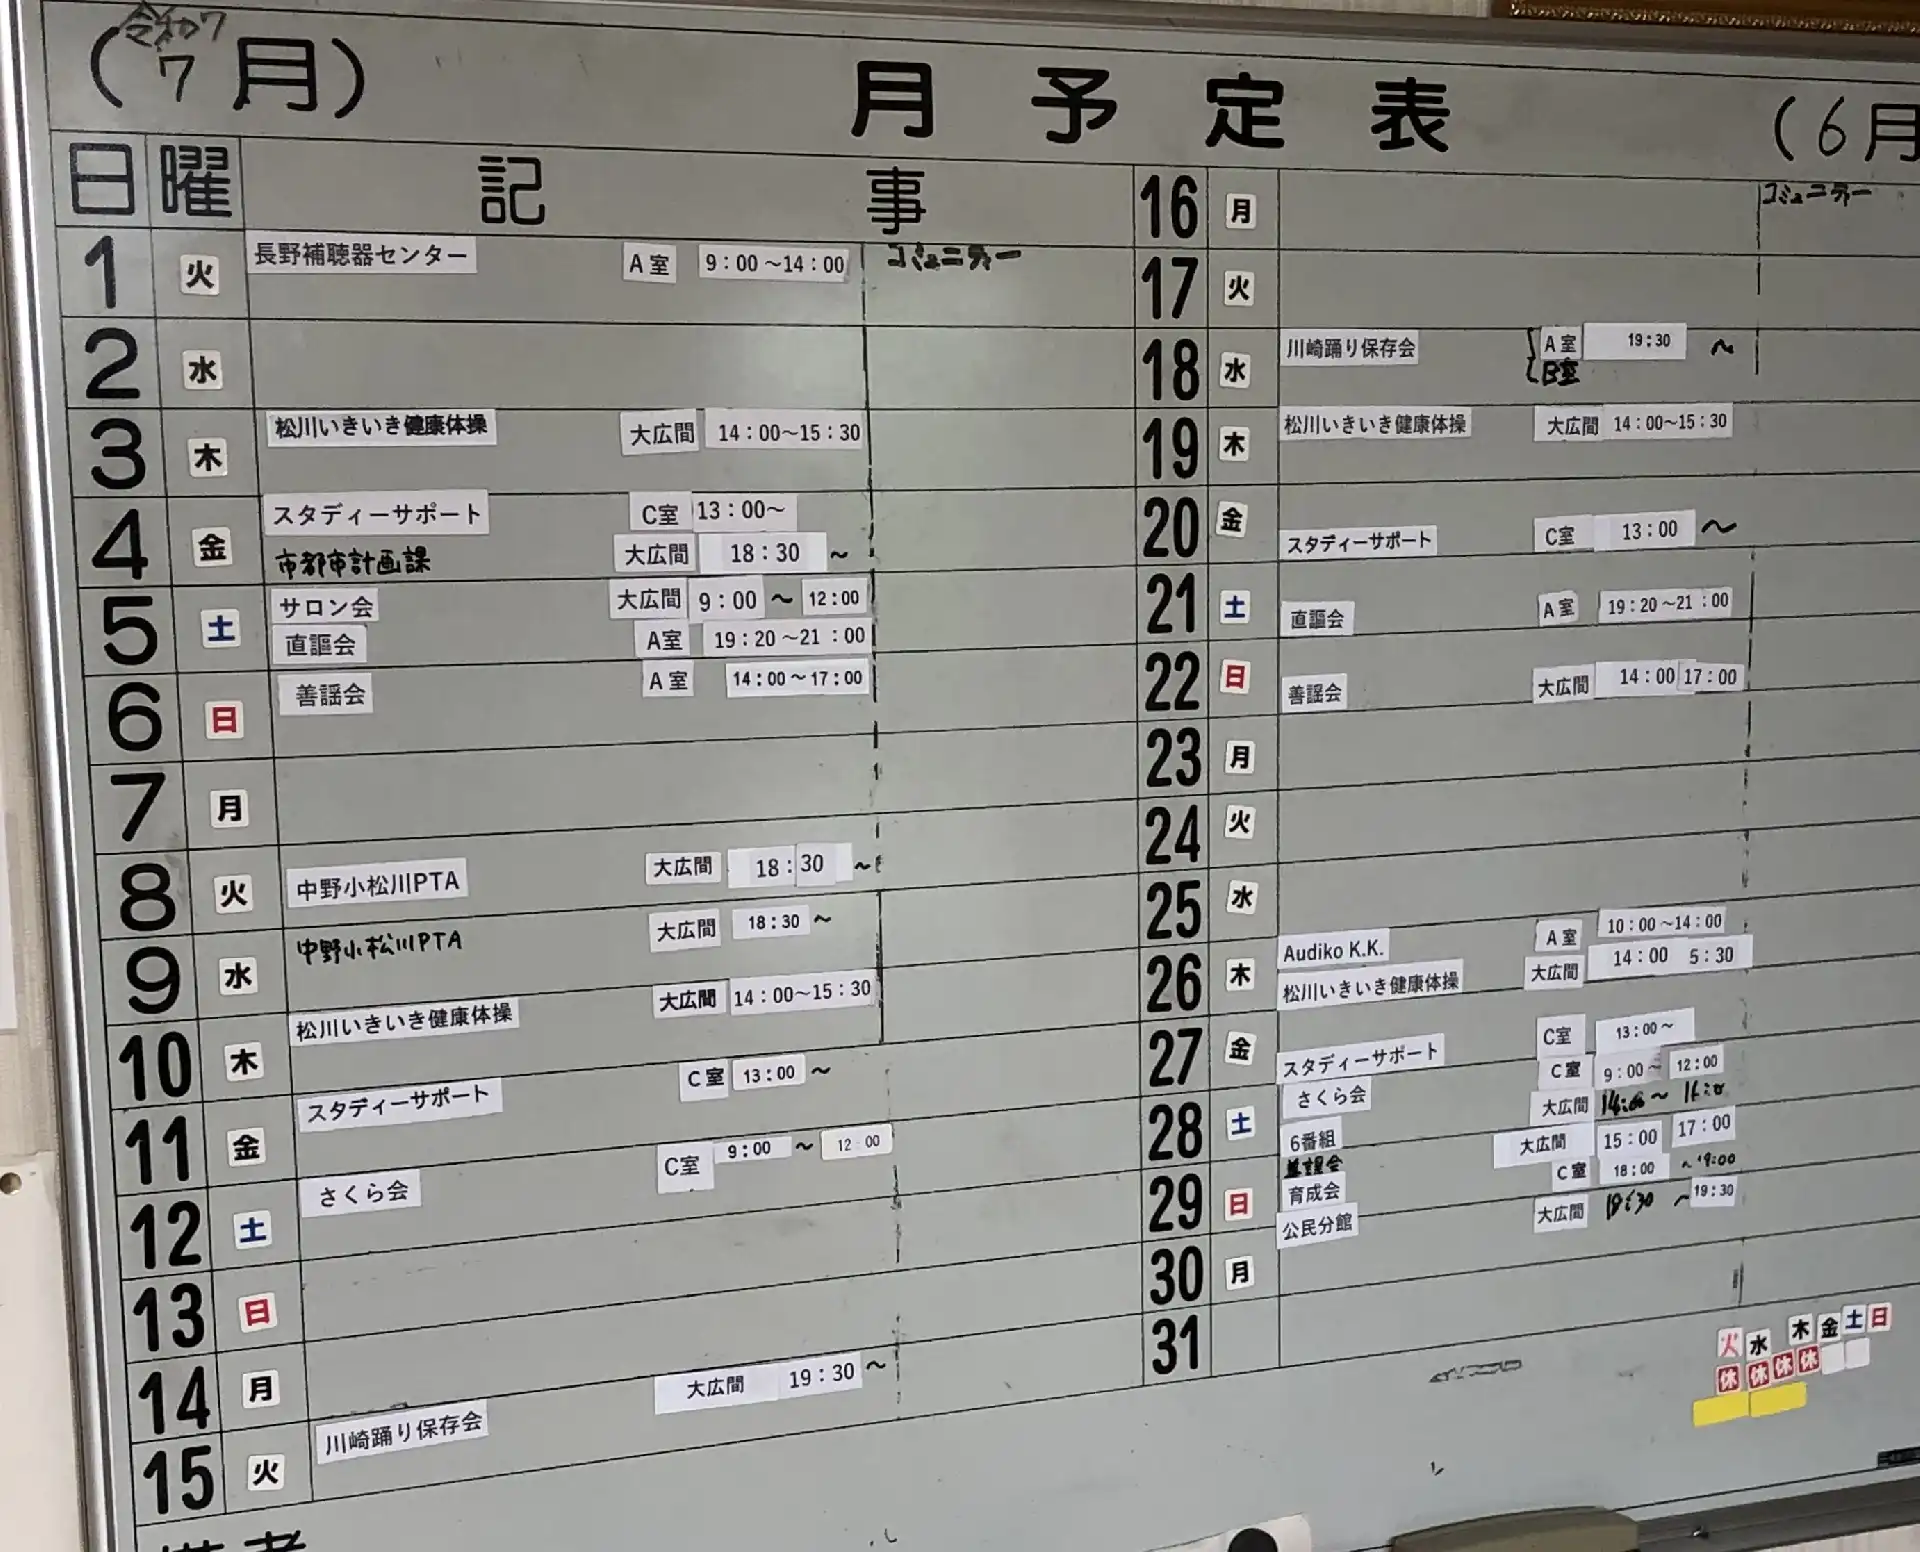 令和7
(7月)
月予定表
(6月
日 曜 記 事
1 火 長野補聴器センター A室 9:00～14:00 コミュニティー
2 水
3 木 松川いきいき健康体操 大広間 14:00～15:30
4 金 スタディーサポート C室 13:00～
市都市計画課 大広間 18:30 ～
5 土 サロン会 大広間 9:00 ～ 12:00
直謳会 A室 19:20～21:00
6 日 善謡会 A室 14:00～17:00
7 月
8 火 中野小松川PTA 大広間 18:30 ～
9 水 中野小松川PTA 大広間 18:30 ～
10 木 松川いきいき健康体操 大広間 14:00～15:30
11 金 スタディーサポート C室 13:00 ～
12 土 さくら会 C室 9:00 ～ 12:00
13 日
14 月
15 火 川崎踊り保存会 大広間 19:30 ～
16 月 コミュニティー
17 火
18 水 川崎踊り保存会 A室 19:30 ～
B室
19 木 松川いきいき健康体操 大広間 14:00～15:30
20 金 スタディーサポート C室 13:00 ～
21 土 直謳会 A室 19:20～21:00
22 日 善謡会 大広間 14:00 17:00
23 月
24 火
25 水
26 木 Audiko K.K. A室 10:00～14:00
松川いきいき健康体操 大広間 14:00 5:30
27 金 スタディーサポート C室 13:00～
28 土 さくら会 C室 9:00～ 12:00
6番組 大広間 14:00～
29 日 善謡会 大広間 15:00 17:00
育成会 C室 18:00 ～19:00
公民分館 大広間 18:30 ～19:30
30 月
31
火 水 木 金 土 日
休 休 休 休